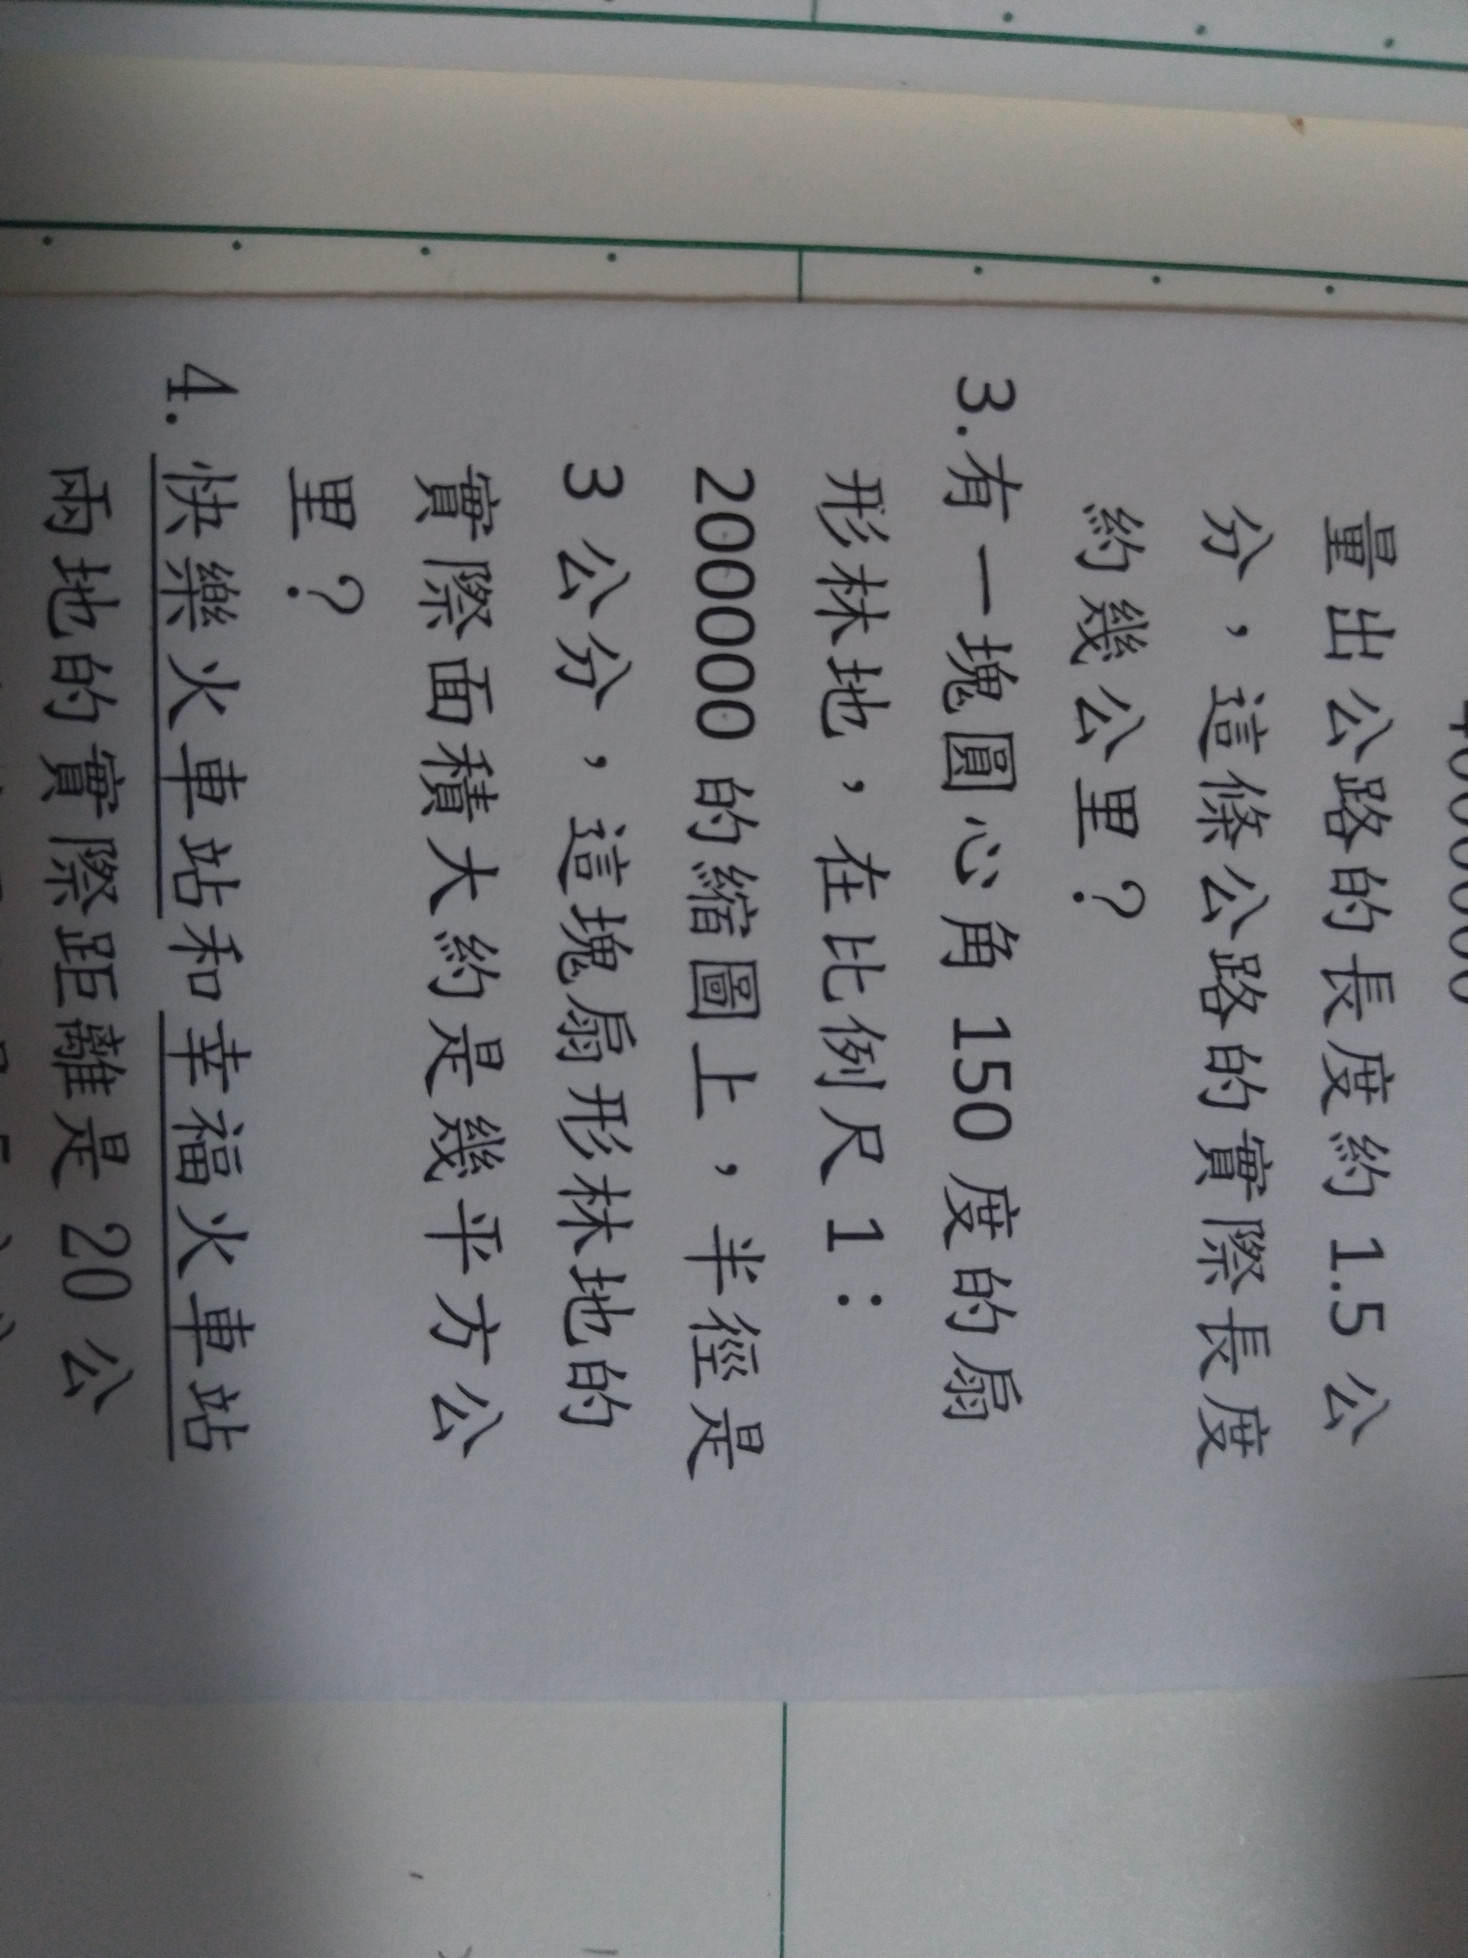 量出公路的長度約 1.5 公
分，這條公路的實際長度
約幾公里？
3.有一塊圓心角 150 度的扇
形林地，在比例尺 1：
2000000 的縮圖上，半徑是
3 公分，這塊扇形林地的
實際面積大約是幾平方公
里？
4. 快樂火車站和幸福火車站
兩地的實際距離是 20 公